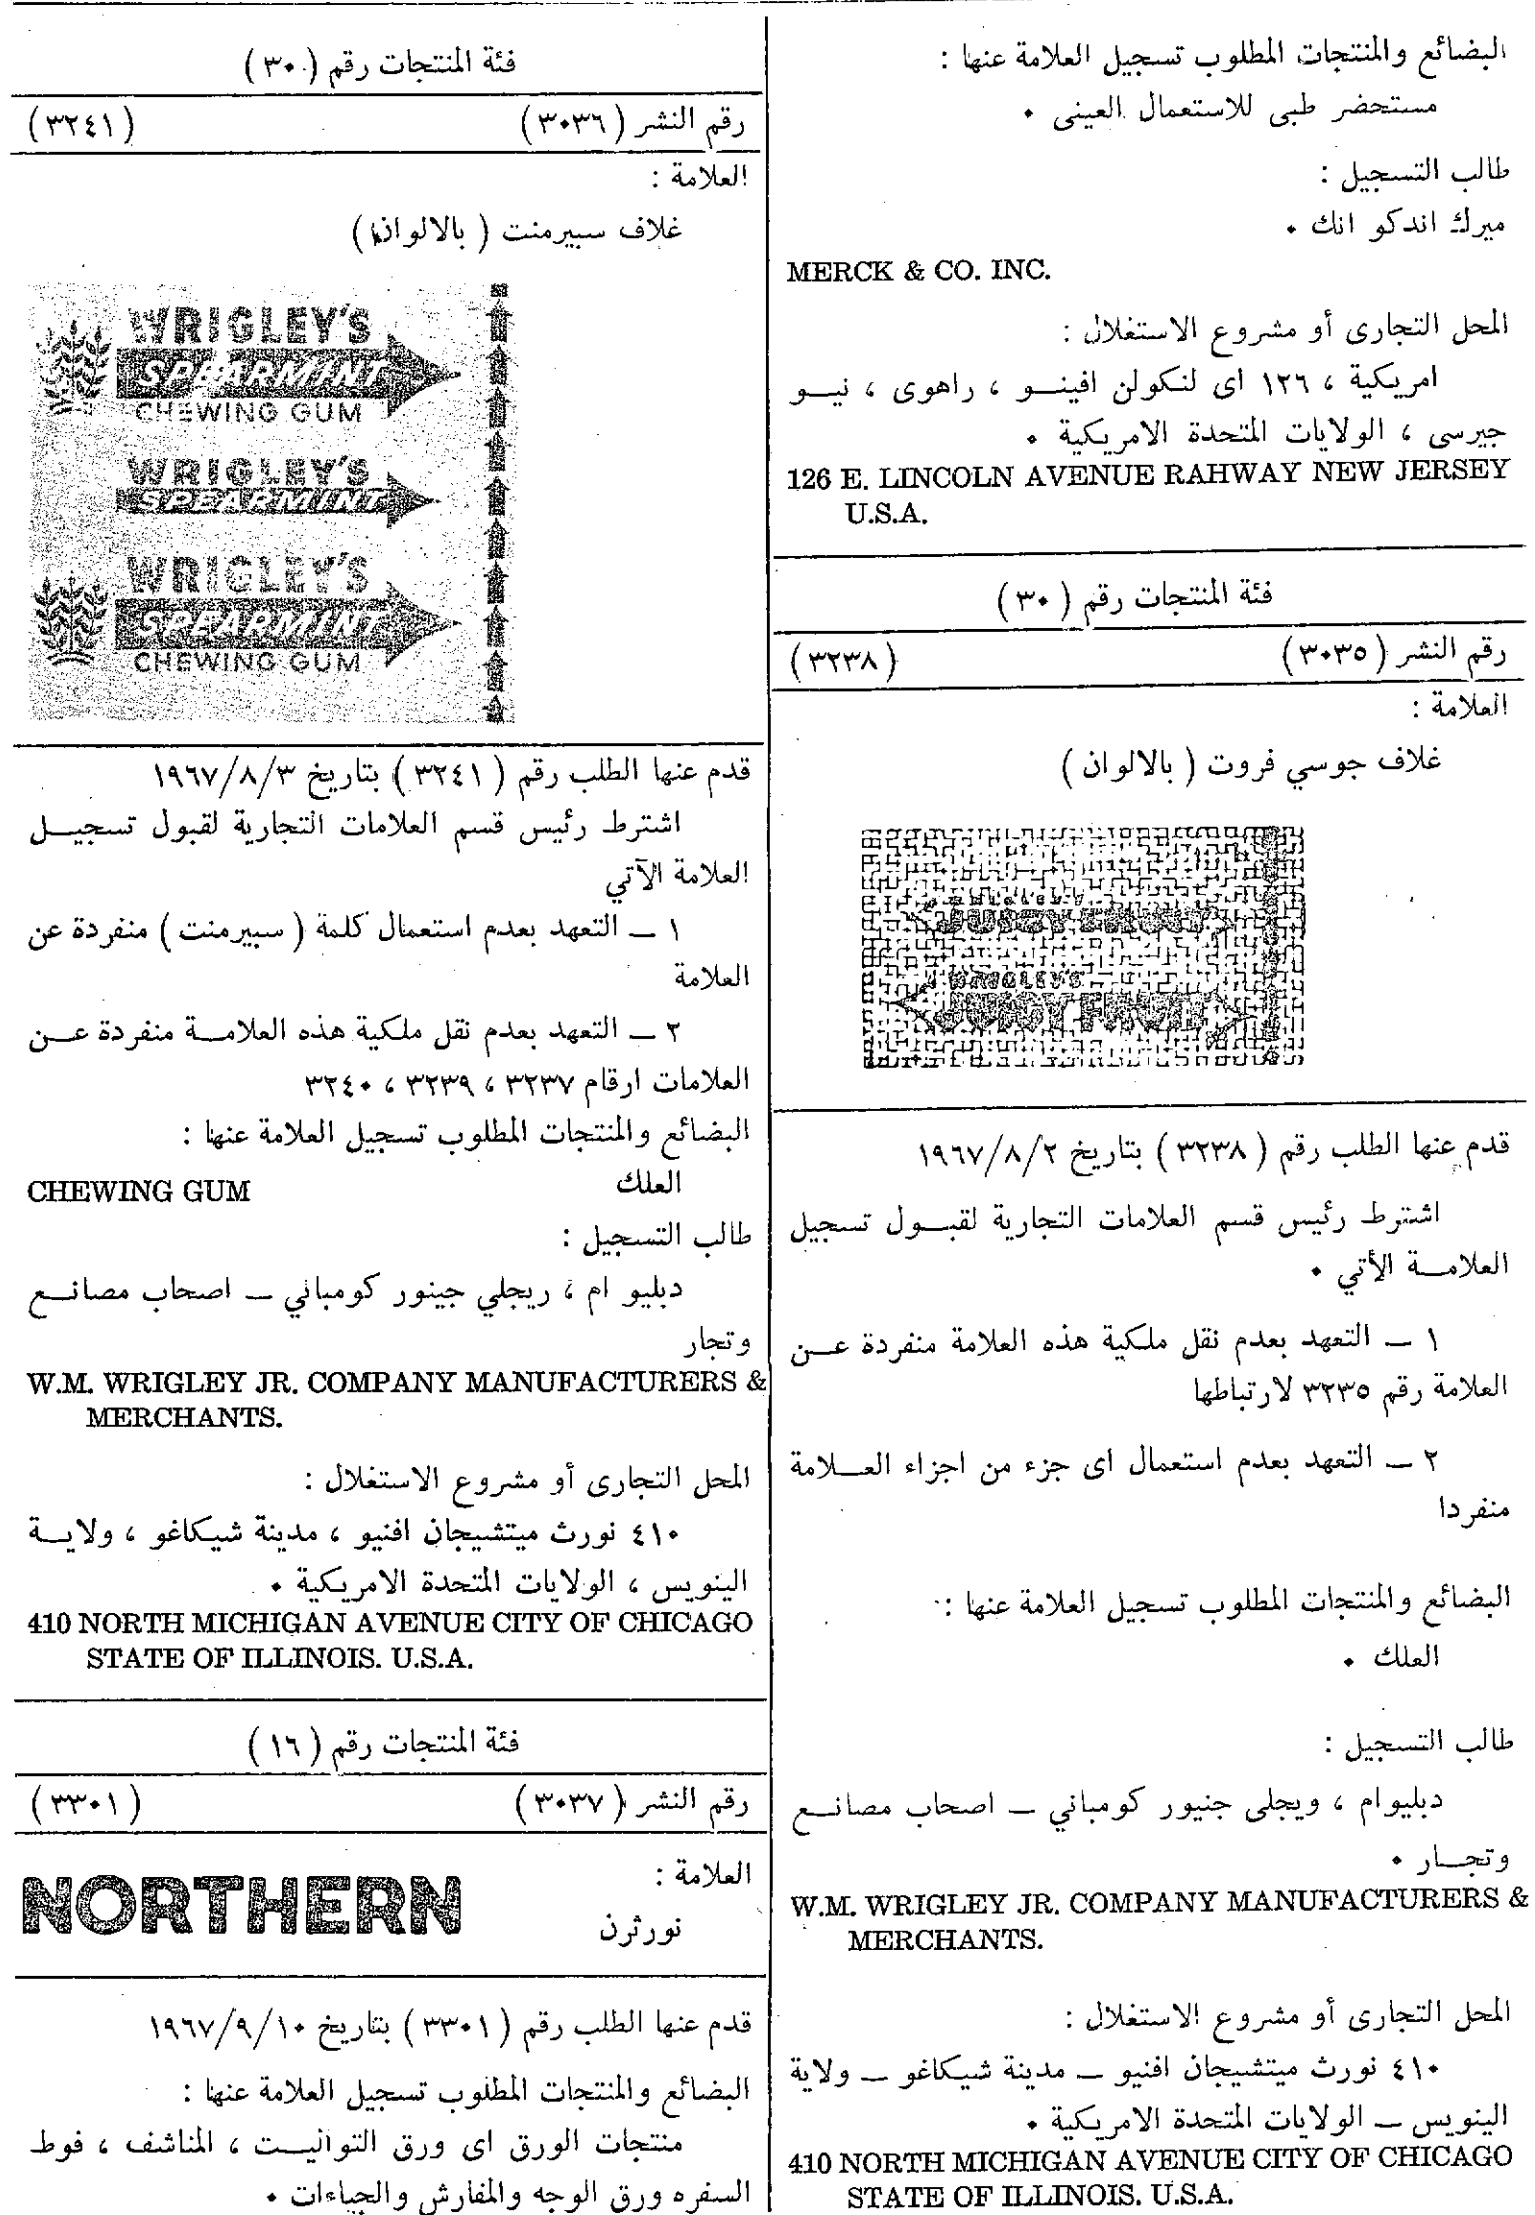 البضائع والمنتجات المطلوب تسجيل العلامة عنها :
مستحضر طبى للاستعمال العينى ٠
طالب التسجيل :
ميرك اندكو انك ٠
MERCK & CO. INC.
المحل التجارى أو مشروع الاستغلال :
امريكية ، ١٢٦ اى لنكولن افينــو ، راهوى ، نيــو
جيرسى ، الولايات المتحدة الامريكية ٠
126 E. LINCOLN AVENUE RAHWAY NEW JERSEY
U.S.A.
فئة المنتجات رقم ( ٣٠ )
رقم النشر ( ٣٠٣٥ ) ( ٣٢٣٨ )
العلامة :
غلاف جوسي فروت ( بالالوان )
WRIGLEY'S
JUICY FRUIT
WRIGLEY'S
JUICY FRUIT
قدم عنها الطلب رقم ( ٣٢٣٨ ) بتاريخ ١٩٦٧/٨/٢
اشترط رئيس قسم العلامات التجارية لقبــول تسجيل
العلامــة الأتي ٠
١ ــ التعهد بعدم نقل ملكية هذه العلامة منفردة عــن
العلامة رقم ٣٢٣٥ لارتباطها
٢ ــ التعهد بعدم استعمال اى جزء من اجزاء العــلامة
منفردا
البضائع والمنتجات المطلوب تسجيل العلامة عنها :
العلك ٠
طالب التسجيل :
دبليوام ، ويجلى جنيور كومباني ــ اصحاب مصانــع
وتجــار ٠
W.M. WRIGLEY JR. COMPANY MANUFACTURERS &
MERCHANTS.
المحل التجارى أو مشروع الاستغلال :
٤١٠ نورث ميتشيجان افنيو ــ مدينة شيكاغو ــ ولاية
الينويس ــ الولايات المتحدة الامريكية ٠
410 NORTH MICHIGAN AVENUE CITY OF CHICAGO
STATE OF ILLINOIS. U.S.A.
فئة المنتجات رقم ( ٣٠ )
رقم النشر ( ٣٠٣٦ ) ( ٣٢٤١ )
العلامة :
غلاف سبيرمنت ( بالالوان )
WRIGLEY'S
SPEARMINT
CHEWING GUM
WRIGLEY'S
SPEARMINT
WRIGLEY'S
SPEARMINT
CHEWING GUM
قدم عنها الطلب رقم ( ٣٢٤١ ) بتاريخ ١٩٦٧/٨/٣
اشترط رئيس قسم العلامات التجارية لقبول تسجيــل
العلامة الآتي
١ ــ التعهد بعدم استعمال كلمة ( سبيرمنت ) منفردة عن
العلامة
٢ ــ التعهد بعدم نقل ملكية هذه العلامــة منفردة عــن
العلامات ارقام ٣٢٣٧ ، ٣٢٣٩ ، ٣٢٤٠
البضائع والمنتجات المطلوب تسجيل العلامة عنها :
العلك CHEWING GUM
طالب التسجيل :
دبليو ام ، ريجلي جينور كومباني ــ اصحاب مصانــع
وتجار
W.M. WRIGLEY JR. COMPANY MANUFACTURERS &
MERCHANTS.
المحل التجارى أو مشروع الاستغلال :
٤١٠ نورث ميتشيجان افنيو ، مدينة شيكاغو ، ولايــة
الينويس ، الولايات المتحدة الامريكية ٠
410 NORTH MICHIGAN AVENUE CITY OF CHICAGO
STATE OF ILLINOIS. U.S.A.
فئة المنتجات رقم ( ١٦ )
رقم النشر ( ٣٠٣٧ ) ( ٣٣٠١ )
العلامة :
نورثرن
NORTHERN
قدم عنها الطلب رقم ( ٣٣٠١ ) بتاريخ ١٩٦٧/٩/١٠
البضائع والمنتجات المطلوب تسجيل العلامة عنها :
منتجات الورق اى ورق التواليــت ، المناشف ، فوط
السفره ورق الوجه والمفارش والحياءات ٠